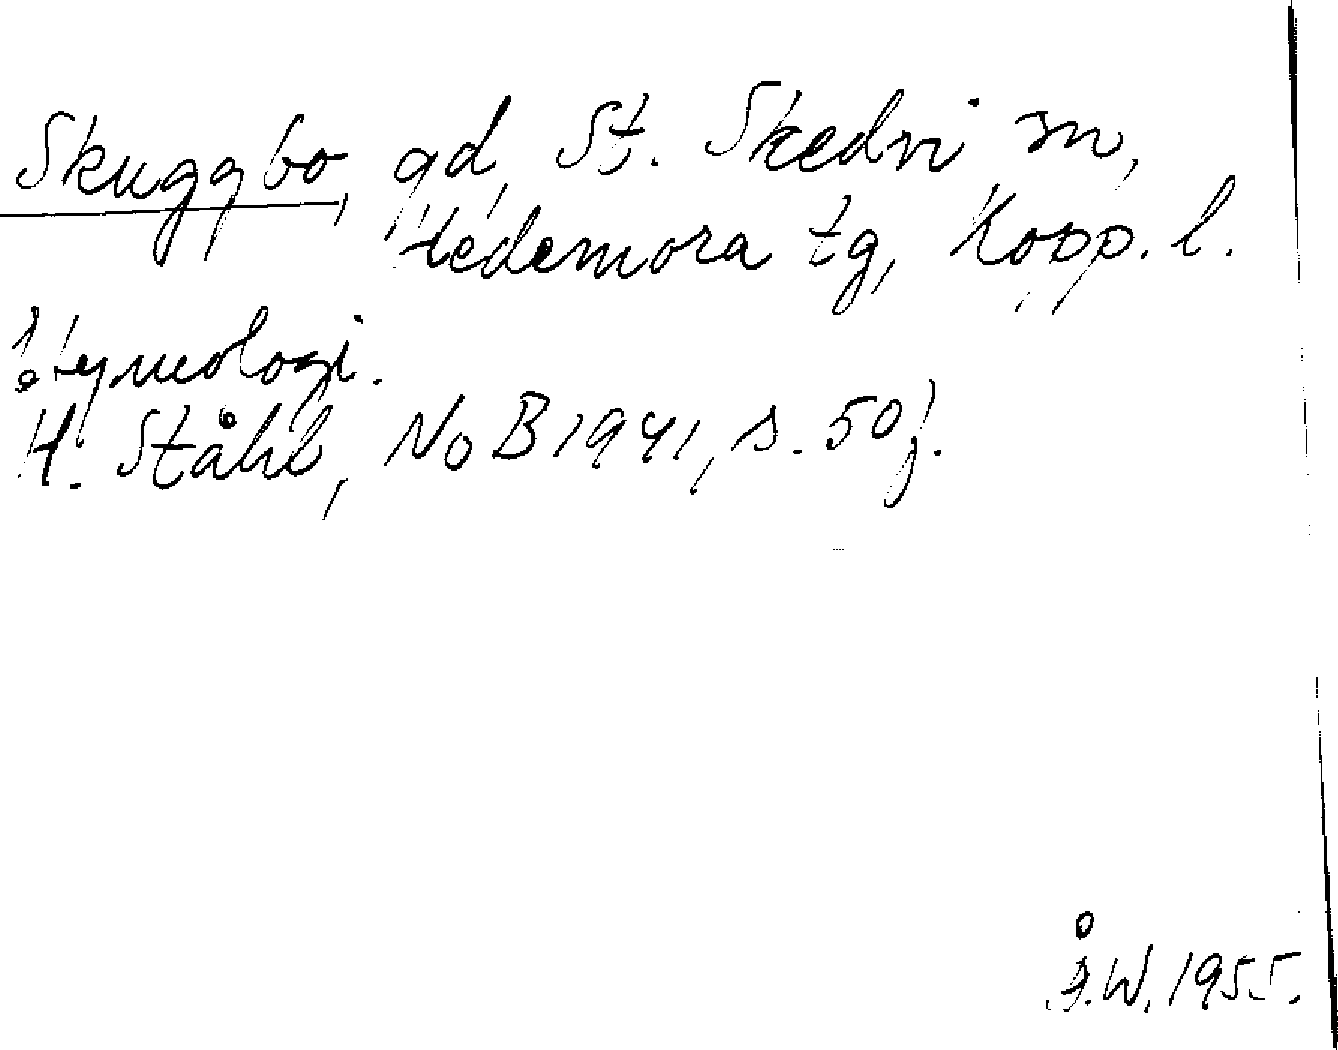 Skuggbo, gd, St. Skedvi sn,
Hedemora tg, Kopp. l.
Etymologi.
H. Ståhl, NoB 1941, s. 50 f.
Å.W. 1955.